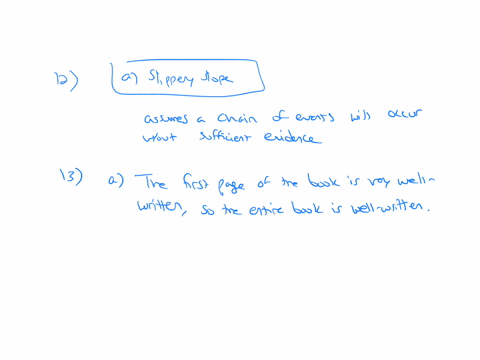 12) a) Slippery slope
assumes a chain of events will occur
without sufficient evidence
13) a) The first page of the book is very well-
written, so the entire book is well-written.